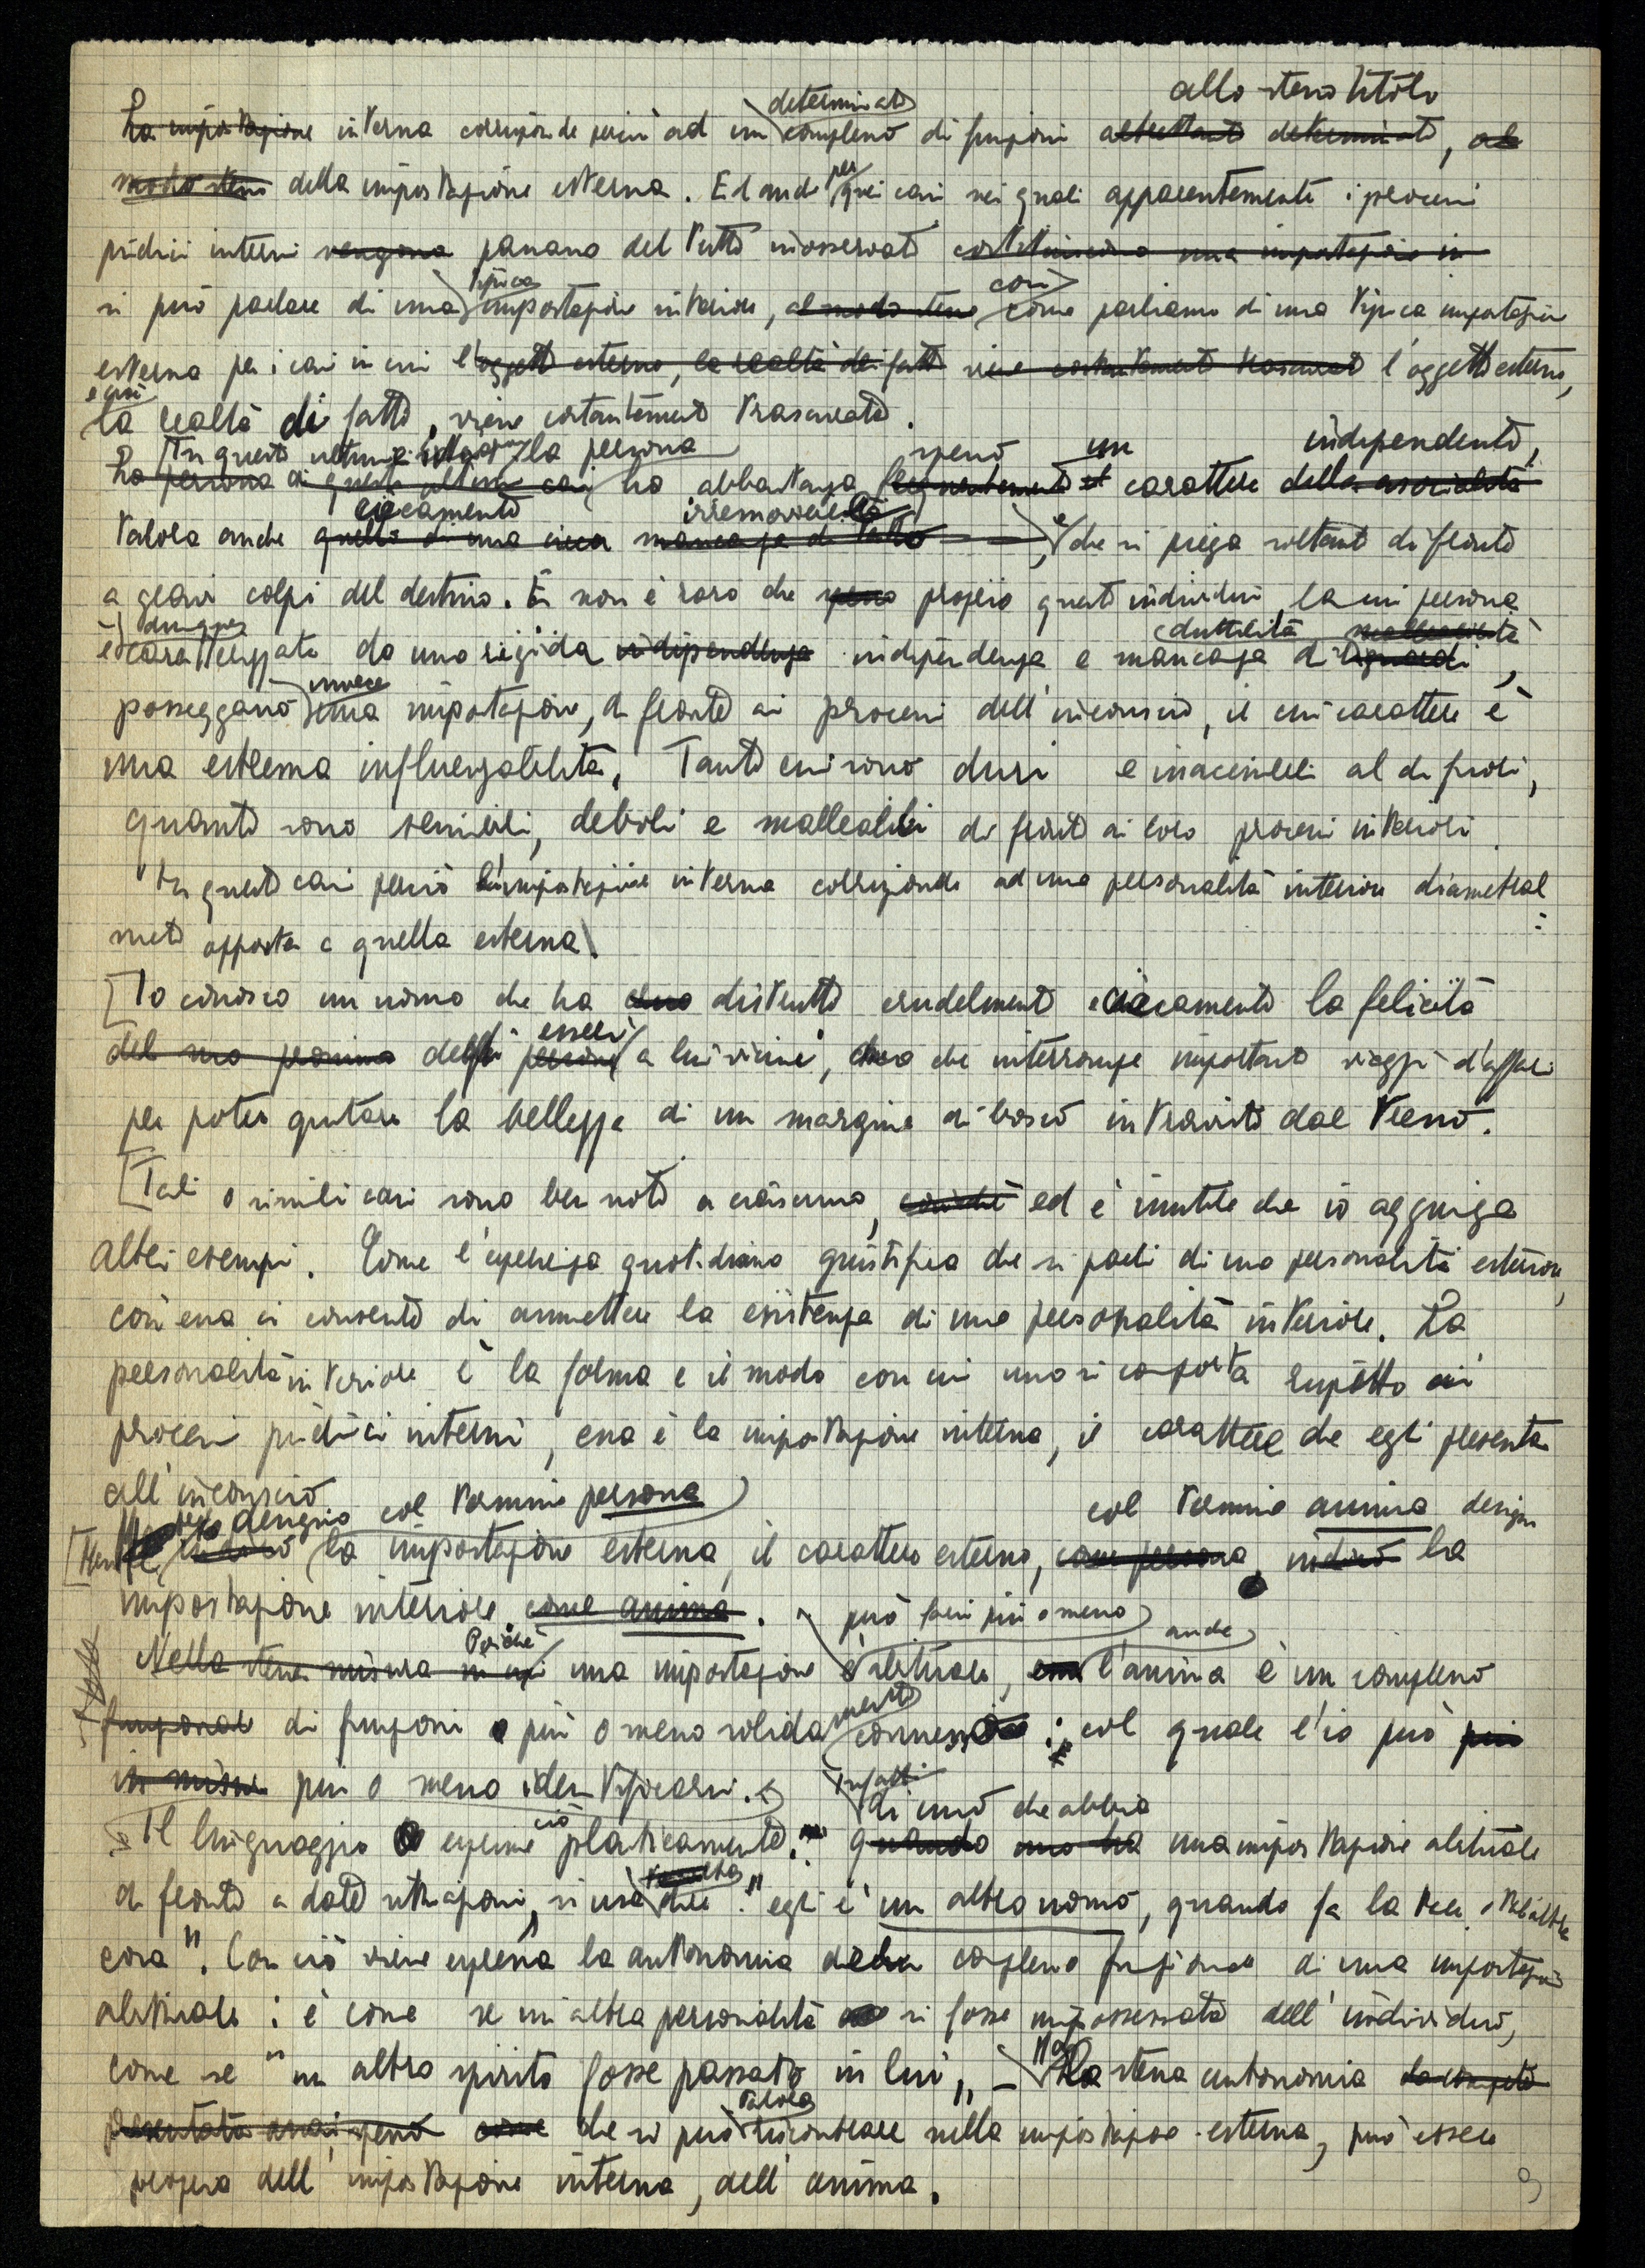 allo stesso titolo
determinato
La impostazione interna corrisponde perciò ad un complesso di funzioni altrettanto determinato, al
modo stesso della impostazione esterna. Ed anche per quei casi nei quali apparentemente i processi
psichici interni vengono passano del tutto inosservati costituiscono una impostazione in
tipica così
si può parlare di una impostazione interiore, al modo stesso come parliamo di una tipica impostazione
esterna per i casi in cui l'oggetto esterno, la realtà dei fatti viene costantemente trascurato l'oggetto esterno,
e così
la realtà di fatto, viene costantemente trascurata.
In questi ultimi la persona spesso un indipendente,
La persona di questi ultimi casi ha abbastanza frequentemente il carattere della asocialità
ciecamente irremovibile
talora anche quello di una cieca mancanza di tatto e che si piega soltanto di fronte
a gravi colpi del destino. E non è raro che spesso proprio questi individui, la cui persona
dunque duttilità, malleabilità
è caratterizzata da una rigida indipendenza indipendenza e mancanza di riguardi,
invece
posseggano una impostazione, di fronte ai processi dell'inconscio, il cui carattere è
una estrema influenzabilità. Tanto essi sono duri e inaccessibili al di fuori,
quanto sono sensibili, deboli e malleabili di fronte ai loro processi interiori.
In questi casi perciò l'impostazione interna corrisponde ad una personalità interiore diametral
mente opposta a quella esterna.
[Io conosco un uomo che ha distrutto crudelmente e ciecamente la felicità
esseri
del suo prossimo degli persone a lui vicini, ma che interrompe importanti viaggi d'affari
per poter gustare la bellezza di un margine di bosco intravisto dal treno.
[Tali o simili casi sono ben noti a ciascuno, cosicché ed è inutile che io aggiunga
altri esempi. Come l'esperienza quotidiana giustifica che si parli di una personalità esteriore,
così essa ci consente di ammettere la esistenza di una personalità interiore. La
personalità interiore è la forma e il modo con cui uno si comporta rispetto ai
processi psichici interni, essa è la impostazione interna, il carattere che egli presenta
all'inconscio
designo col termine persona col termine anima design
la impostazione esterna, il carattere esterno, come persona, indico la
impostazione interiore come anima.
può farsi più o meno
Poiché anche
Nella stessa misura in cui una impostazione è abituale, essa l'anima è un complesso
mente
funzionale di funzioni più o meno solidamente connesso; col quale l'io può più
in misura più o meno identificarsi.
Infatti
ciò di uno che abbia
Il linguaggio esprime plasticamente: quando uno ha una impostazione abituale
di fronte a date situazioni, si usa dire "egli è un altro uomo, quando fa la tale o tal altra
cosa". Con ciò viene espressa la autonomia del complesso funzionale di una impostazione
abituale: è come se un'altra personalità si fosse impossessata dell'individuo,
come se "un altro spirito fosse passato in lui" – La stessa autonomia
talora
che si può riscontrare nella impostazione esterna, può essere
propria dell'impostazione interna, dell'anima.